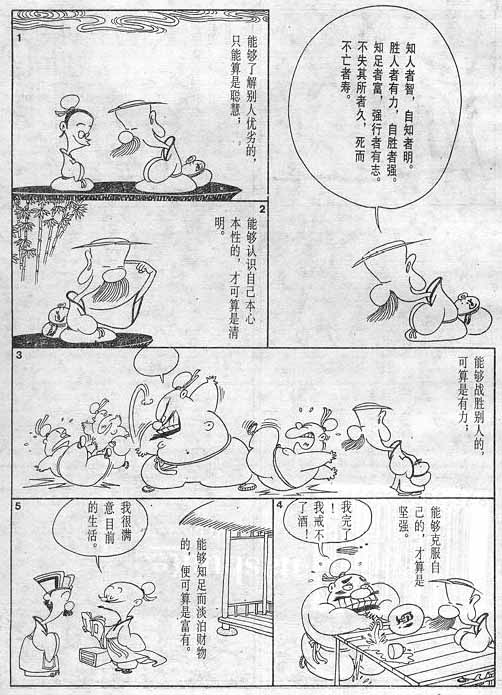 知人者智，自知者明。
胜人者有力，自胜者强。
知足者富，强行者有志。
不失其所者久，死而
不亡者寿。
1
能够了解别人优劣的，
只能算是聪慧；
2
能够认识自己本心
本性的，才可算是清
明。
3
能够战胜别人的，
可算是有力；
4
能够克服自
己的，才算是
坚强。
我完了
！
我戒不
了酒！
5
能够知足而淡泊财物
的，便可算是富有。
我很满
意目前
的生活。